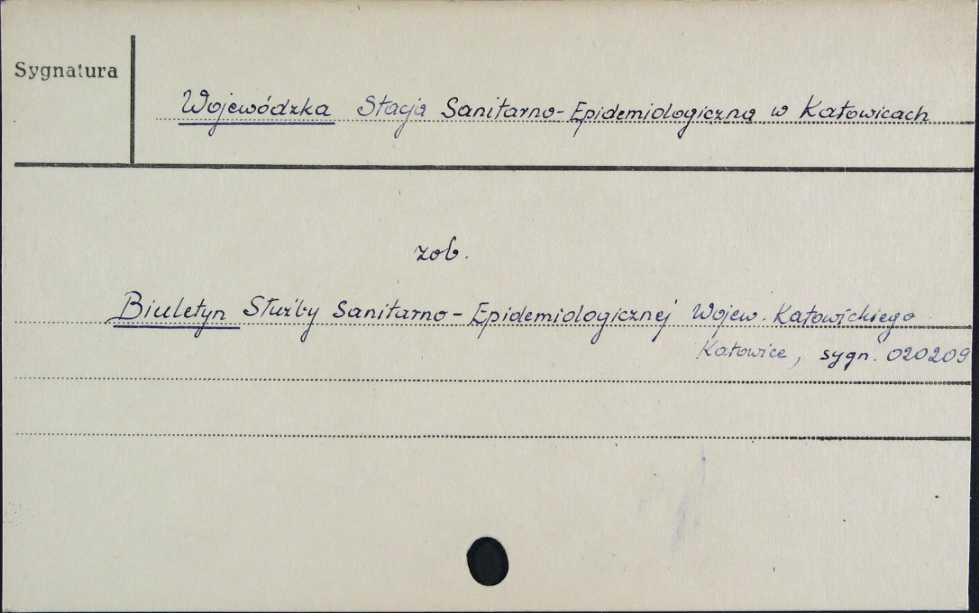 Sygnatura
Wojewódzka Stacja Sanitarno-Epidemiologiczna w Katowicach
zob.
Biuletyn Służby Sanitarno-Epidemiologicznej Wojew. Katowickiego
Katowice, sygn. 020209